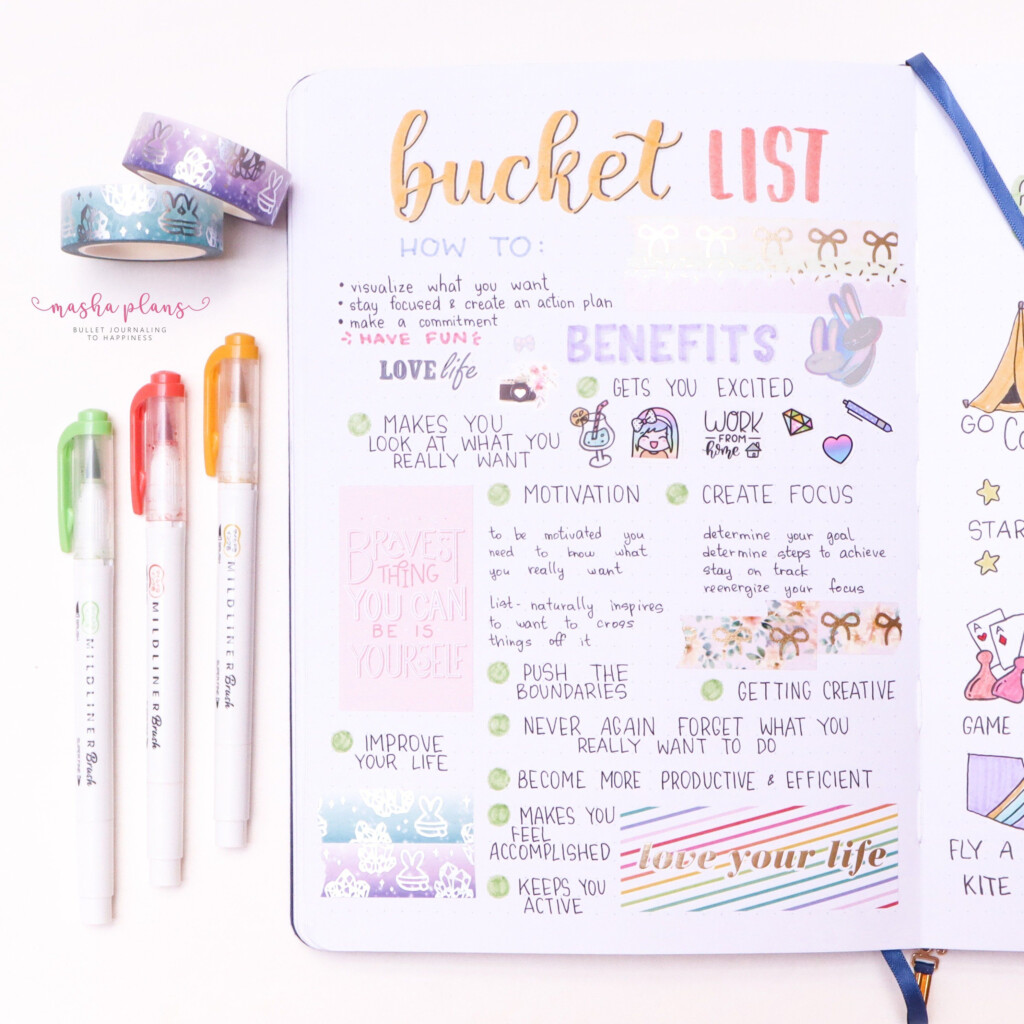 bucket LIST
HOW TO:
• visualize what you want
• stay focused & create an action plan
• make a commitment
HAVE FUN
LOVE life
BENEFITS
GETS YOU EXCITED
MAKES YOU
LOOK AT WHAT YOU
REALLY WANT
WORK
FROM
home
MOTIVATION
to be motivated you
need to know what
you really want
list- naturally inspires
to want to cross
things off it
CREATE FOCUS
determine your goal
determine steps to achieve
stay on track
reenergize your focus
BRAVEST
THING
YOU CAN
BE IS
YOURSELF
PUSH THE
BOUNDARIES
GETTING CREATIVE
NEVER AGAIN FORGET WHAT YOU
REALLY WANT TO DO
IMPROVE
YOUR LIFE
BECOME MORE PRODUCTIVE & EFFICIENT
MAKES YOU
FEEL
ACCOMPLISHED
KEEPS YOU
ACTIVE
love your life
masha plans
BULLET JOURNALING
TO HAPPINESS
MILDLINER Brush
MILDLINER Brush
MILDLINER Brush
GO
STAR
A
A
GAME
FLY A
KITE